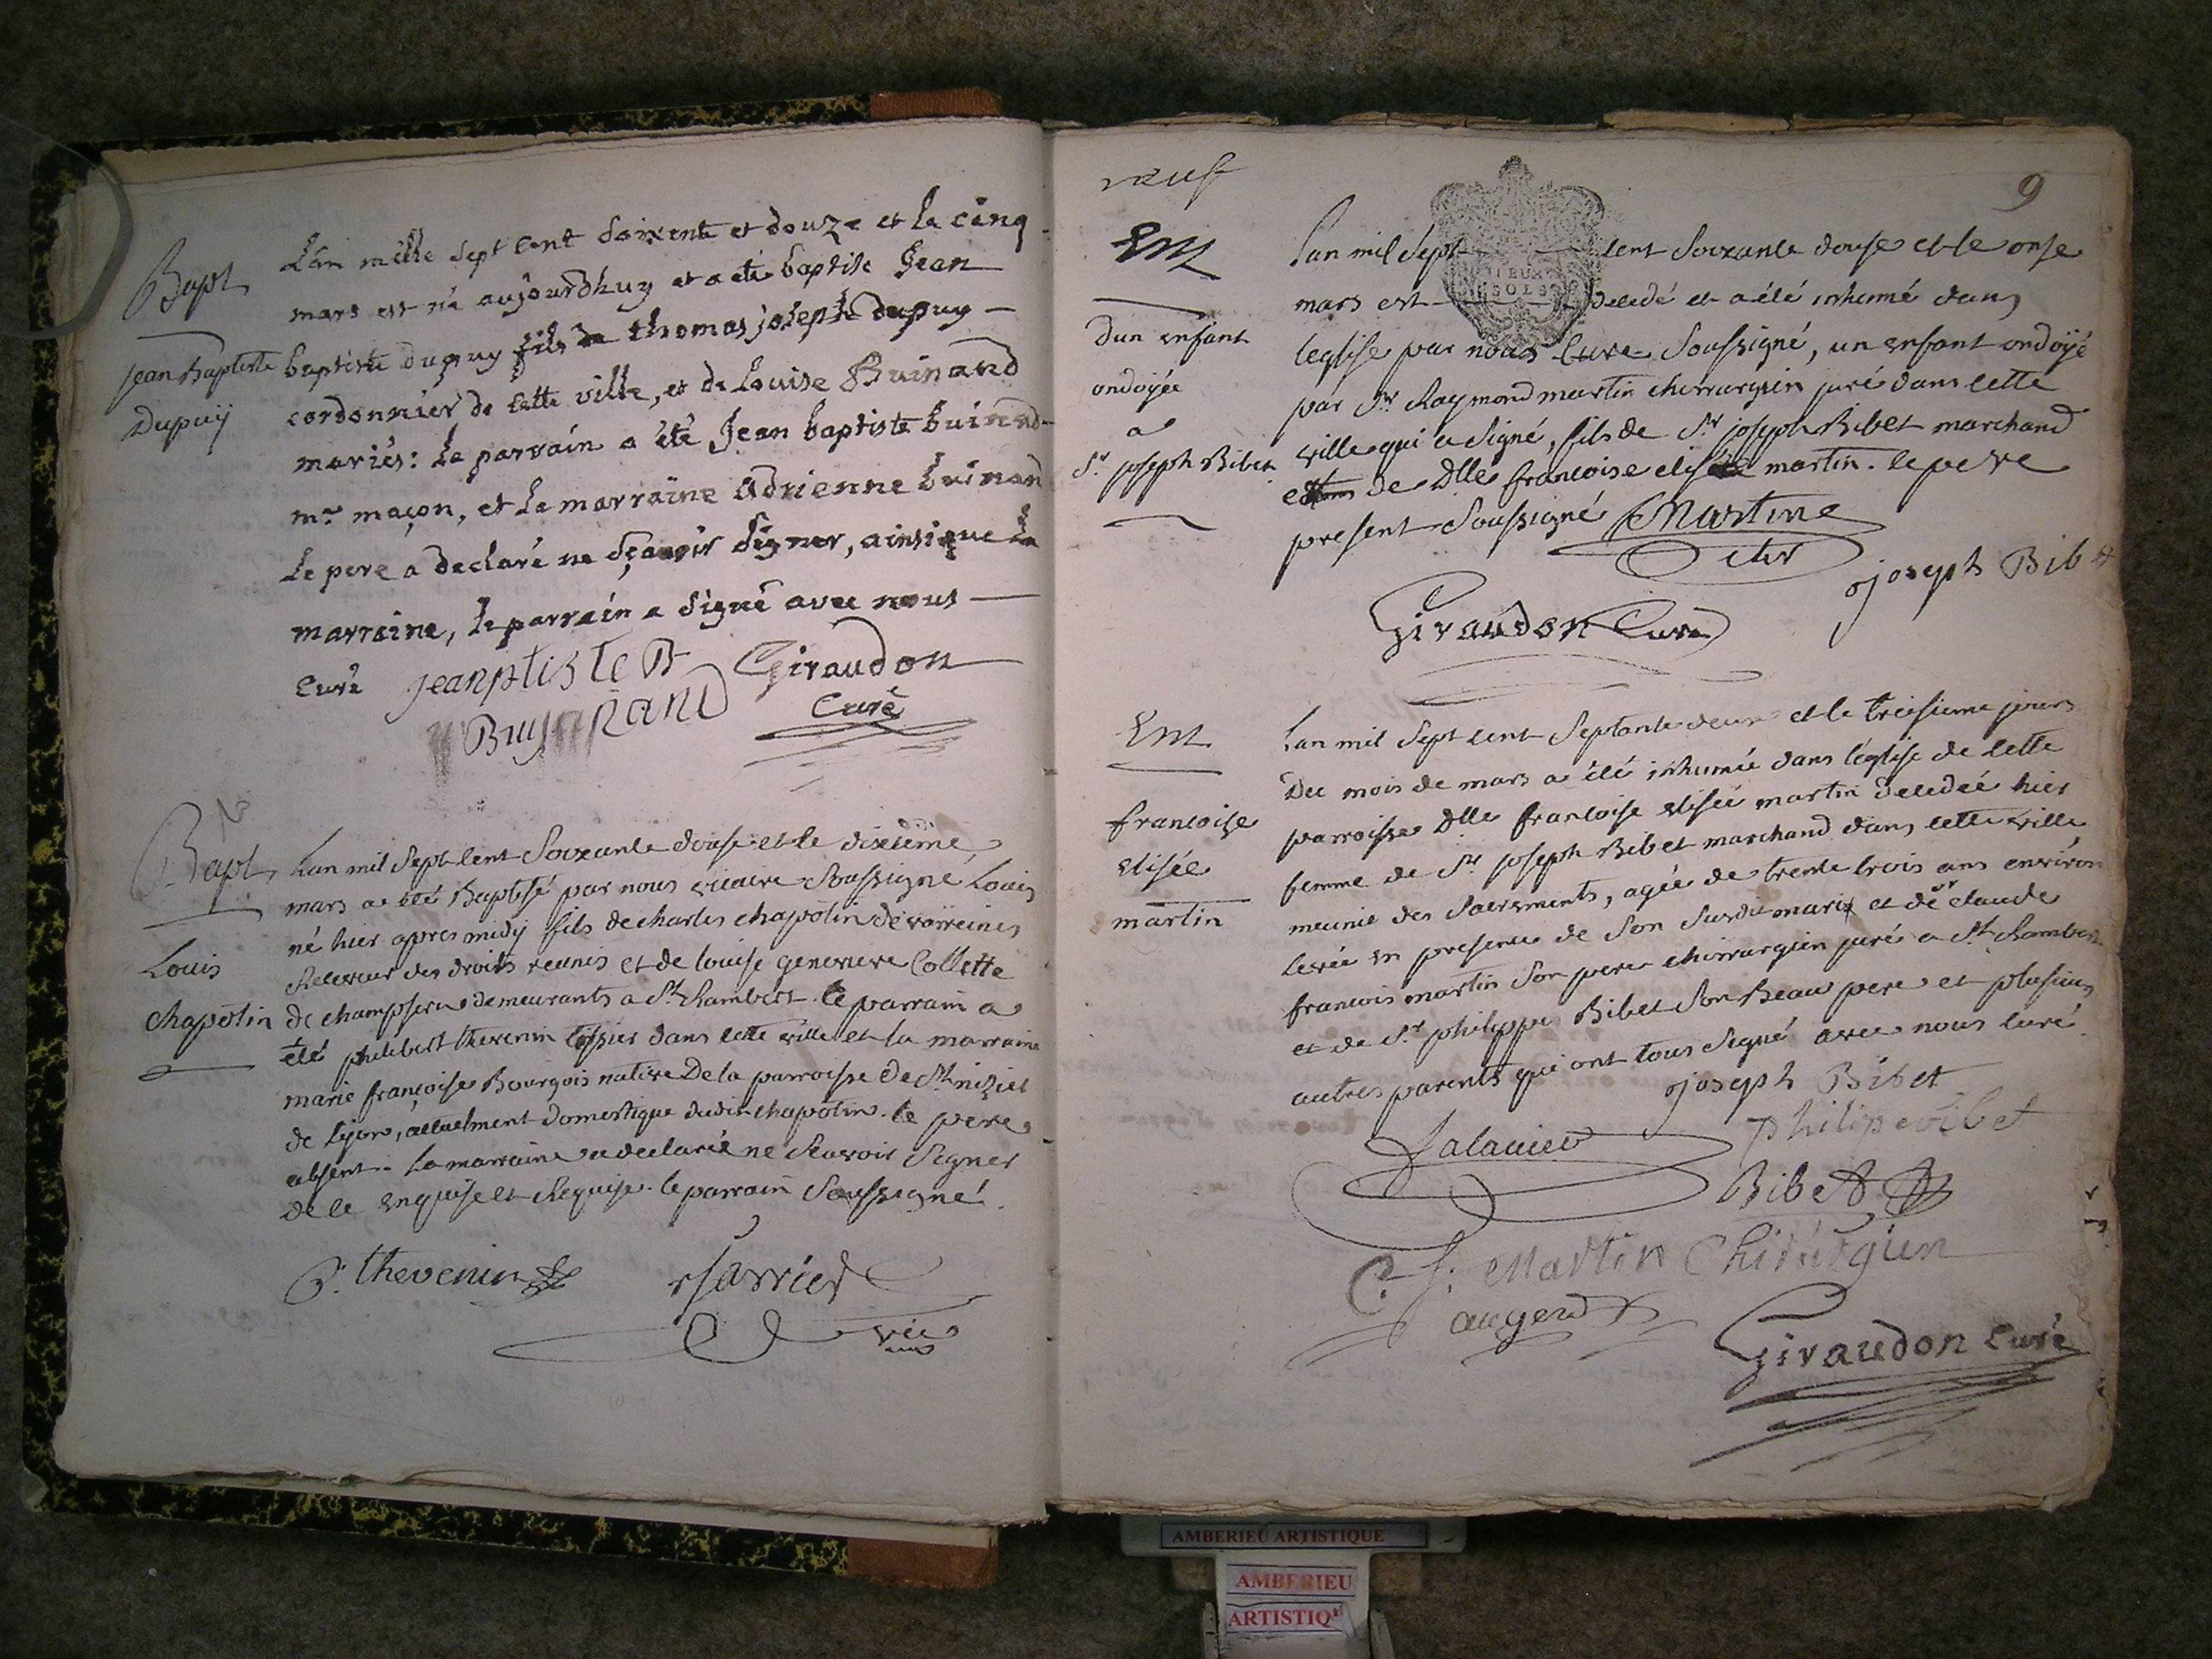 Bapt
Jean Baptiste
Dupuÿ
L'an mille sept cent soixente et douze et le cinq
mars est né aujourdhuy et a été baptisé Jean
baptiste dupuy fils de thomas joseph dupuy
cordonnier de cette ville, et de Louise Buinand
mariés: le parrain a été Jean baptiste buinand
mre maçon, et la marraine Adrienne buinand
Le pere a declaré ne sçavoir signer, ainsi que la
marraine, le parrain a signé avec nous
curé Jeanptiste B Giraudon
Curé
Bapt
Louis
chapotin
Lan mil sept cent soixante douse et le dixième
mars a été Baptisé par nous vicaire soussigné Louis
né hier apres midÿ fils de charles chapotin
Receveur des droits reunis et de louise genevieve Collette
de demeurants a St Rambert. le parrain a
été philibert thevenin dans cette ville et la marraine
marie françoise Bourgois native De la parroisse De St nizier
de Lyon, actuelment domestique dudit chapotin. le pere
absent. La marraine a declaré ne scavoir signer
de ce enquise et Requise. le parrain soussigné.
P. thevenin
vic
neuf
9
Ent
dun enfant
ondoyée
a
Sr joseph Bibet
Lan mil sept cent soixante douse et le onse
mars est decedé et a été inhumé dans
leglise par nous Curé soussigné, un enfant ondoÿé
par Sr Raymond martin chirrurgien juré dans cette
ville qui a signé, fils de Sr joseph Bibet marchand
et de Dlle francoise elisée martin. le pere
present soussigné Martin
joseph Bibet
Giraudon Curé
Ent
francoise
elisée
martin
Lan mil sept cent septante deux et le treisieme jours
Du mois de mars a été inhumée dans l'église de cette
parroisse Dlle francoise elisée martin decedée hier
femme de Sr joseph Bibet marchand dans cette ville
meunie des sacrements, agée de trente trois ans environ
levée en presence de son susdit mari et de Sr claude
francois martin son pere chirrurgien juré a St Rambert
et de Sr philippe Bibet son Beau pere et plusieurs
autres parents qui ont tous signé avec nous curé.
joseph Bibet
philipe bibet
Bibet
C. f. Martin Chirurgien
auger
Giraudon curé
AMBERIEU ARTISTIQUE
AMBERIEU
ARTISTIQ